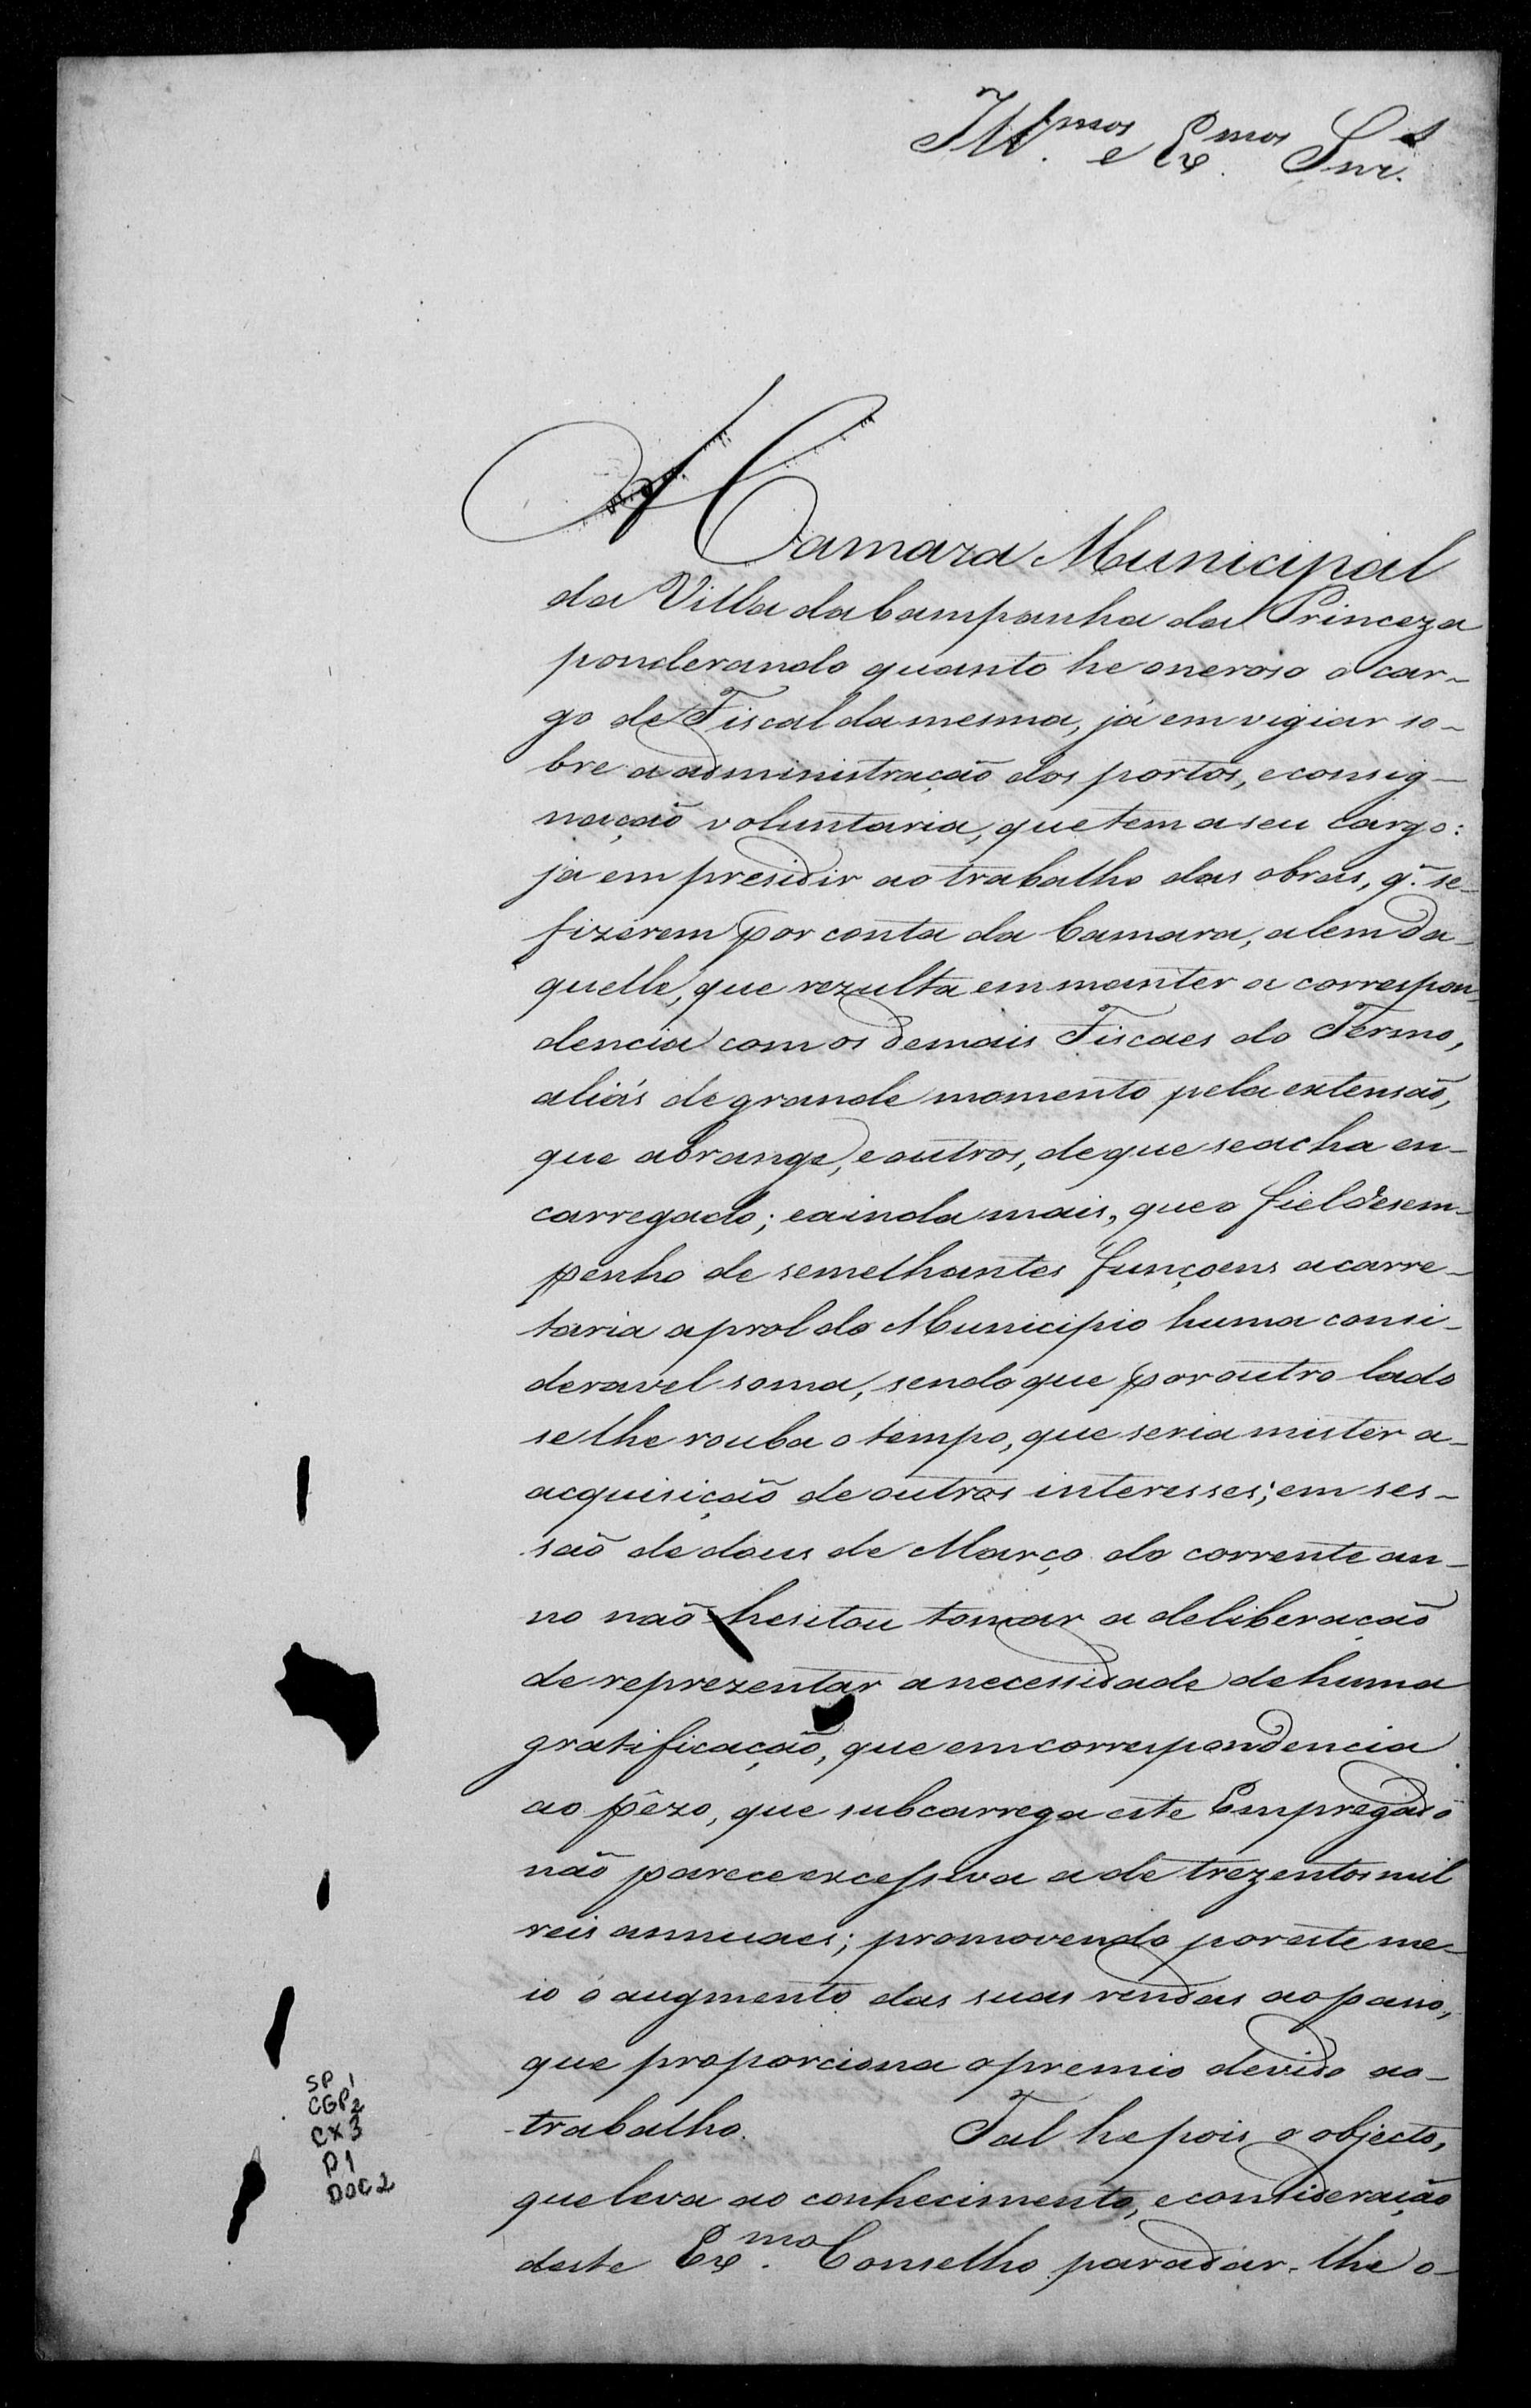 Ill.mos e Ex.mos Snr.s
A Camara Municipal
da Villa da Campanha da Princeza
ponderando quanto he oneroso o car-
go de Fiscal da mesma, já em vigiar so-
bre a administração dos portos, e consig-
nação voluntaria, que tem a seu cargo:
já em presidir ao trabalho das obras, q. se
fizerem por conta da Camara, alem da-
quelle, que rezulta em manter a correspon-
dencia com os demais Fiscaes do Termo,
aliás de grande momento pela extensão,
que abrange, e outros, de que se acha en-
carregado; e ainda mais, que o fiel desem-
penho de semelhantes funçoens acarre-
taria a prol do Municipio huma consi-
deravel soma, sendo que por outro lado
se lhe rouba o tempo, que seria mister a-
acquisição de outros interesses; em ses-
são de dous de Março do corrente an-
no não hesitou tomar a deliberação
de reprezentar a necessidade de huma
gratificação, que em correspondencia
ao pêzo, que subcarrega este Empregado
não parece excessiva a de trezentos mil
reis annuaes; promovendo por este me-
io o augmento das suas rendas ao passo,
que proporciona o premio devido ao-
trabalho. Tal he pois o objecto,
que leva ao conhecimento, e consideração
deste Ex.mo Conselho para dar-lhe o-
SP 1
CGP2
CX3
P1
DOC2